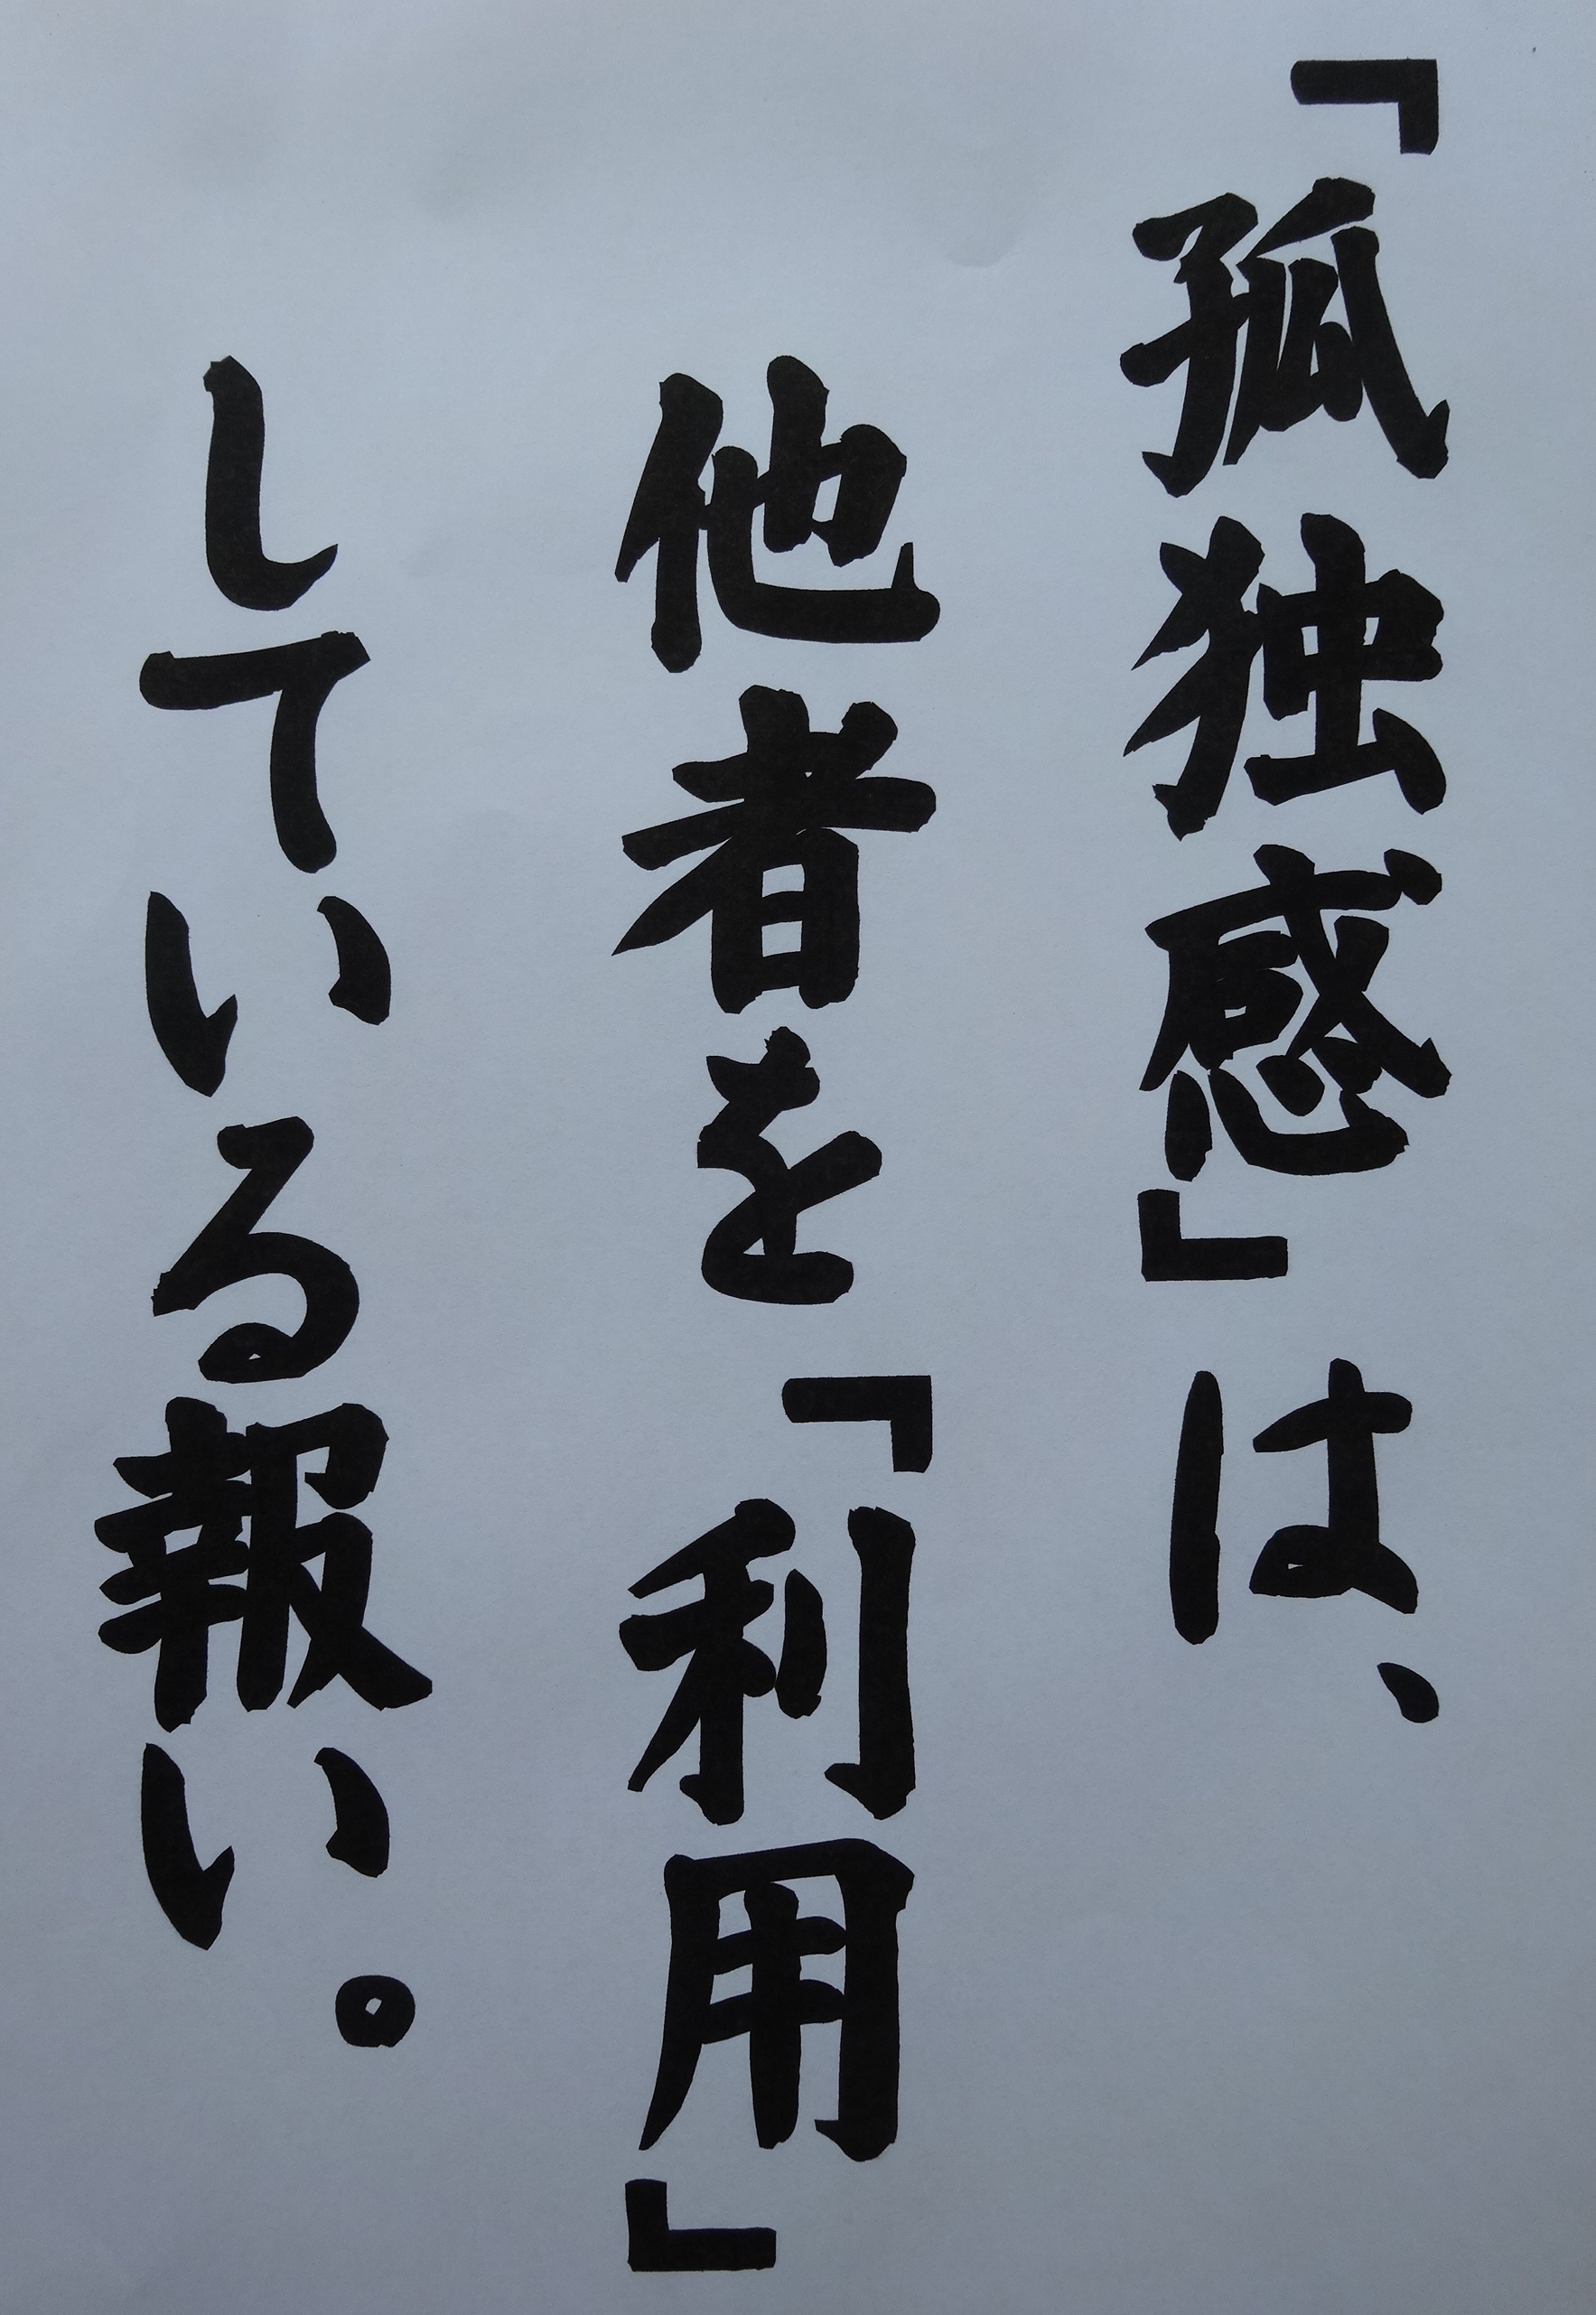 「孤独感」は、
他者を「利用」
している報い。